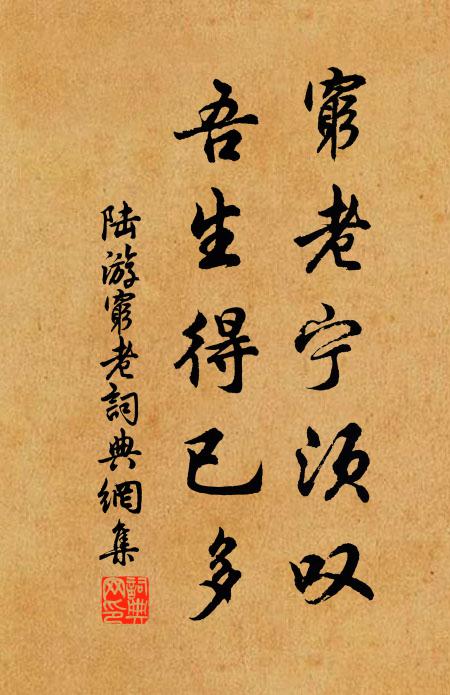 窮老宁須叹
吾生得已多
陆游窮老詞典網集
詞典網印